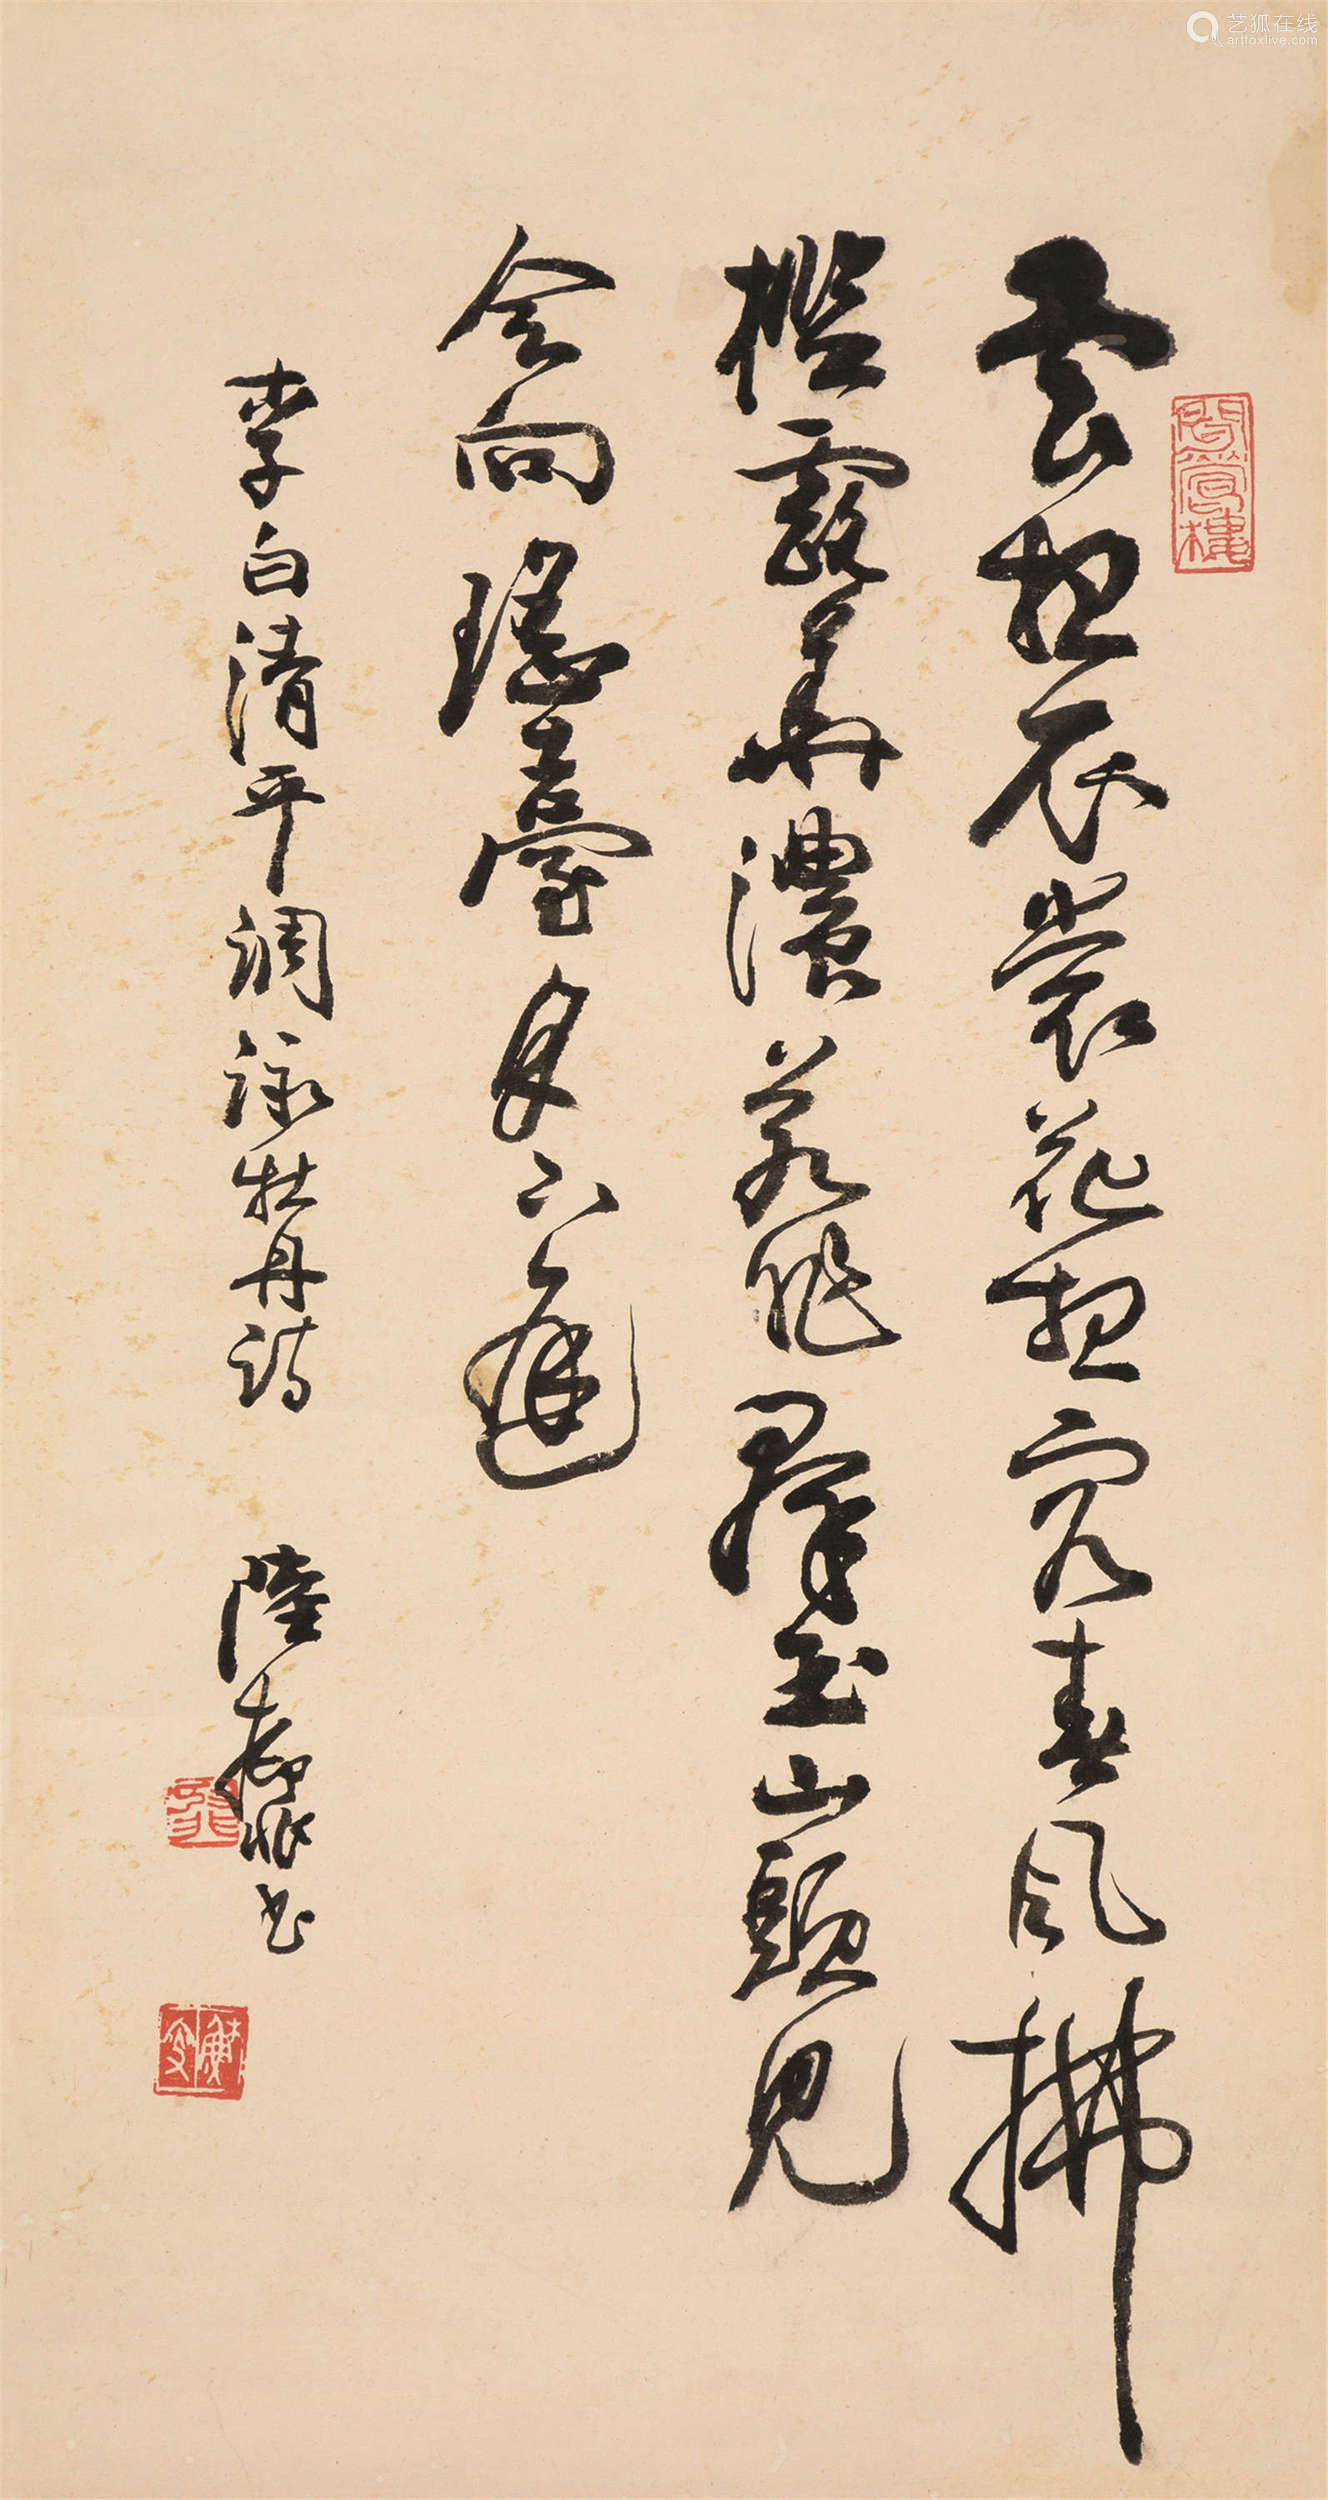 艺狐在线
artfoxlive.com
雲想衣裳花想容春風拂
檻露華濃若非羣玉山頭見
会向瑤臺月下逢
李白清平調詠牡丹詩 陸抑非书